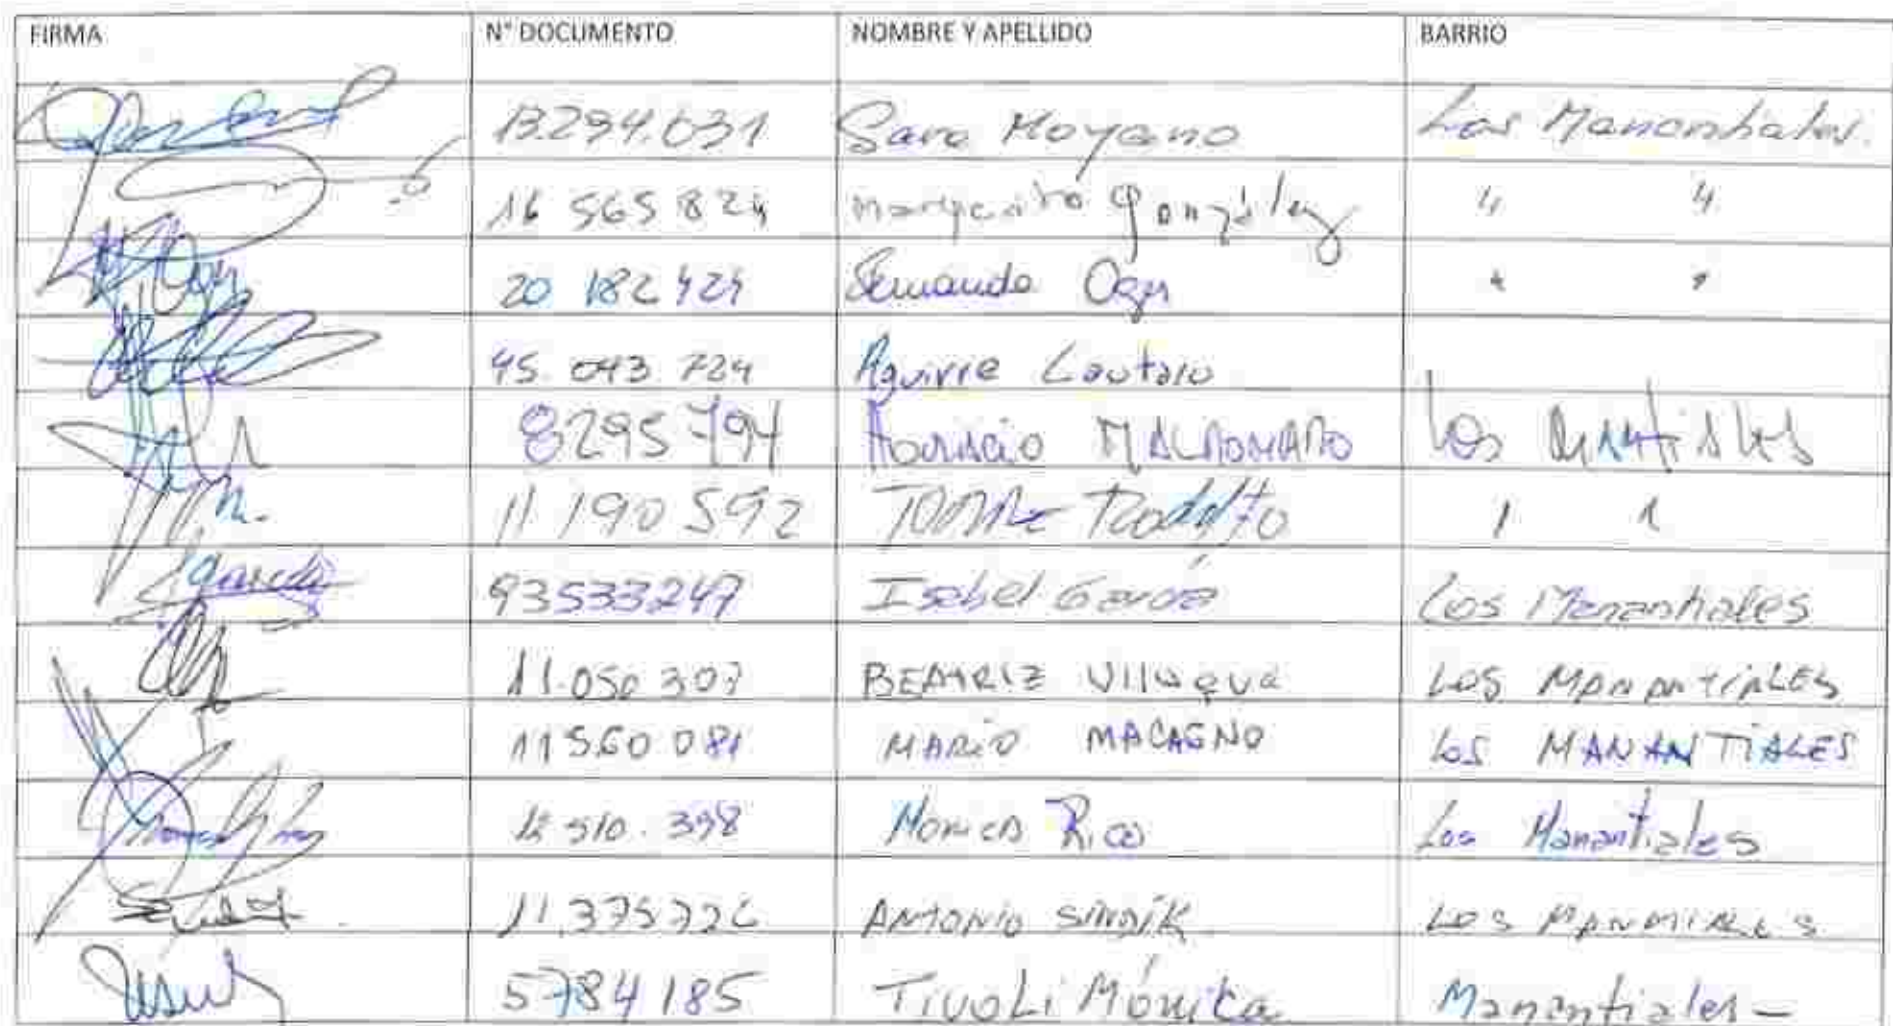 FIRMA N° DOCUMENTO NOMBRE Y APELLIDO BARRIO
13.294.031 Sara Moyano Los Manantiales.
16 565 824 Margarita González " "
20 182 424 Ogas " "
45 043 724 Aguirre Lautaro
8295794 MALDONADO Los
11 190 592 Rodolfo " "
García 93533247 Isabel García Los Manantiales
11.050 307 BEATRIZ LOS MANANTIALES
11560 081 MARIO MACAGNO LOS MANANTIALES
12 510. 398 Monica Rico Los Manantiales
11.375726 ANTONIO SINDIK LOS
5784185 TIVOLI Mónica Manantiales-